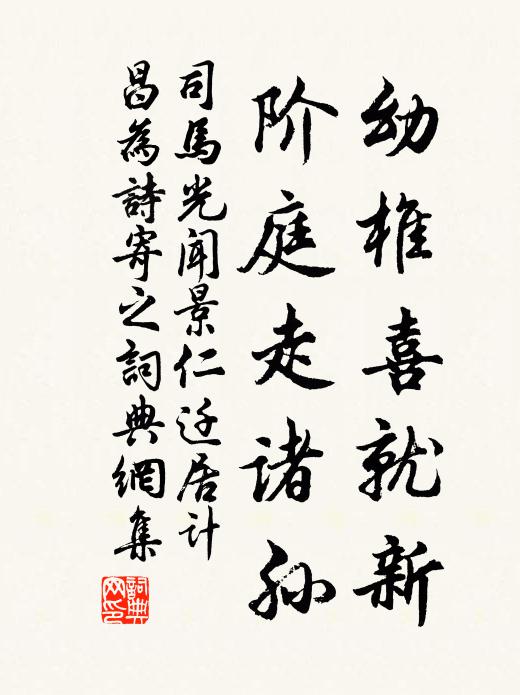 幼椎喜就新
阶庭走诸孙
司馬光聞景仁迁居计
昌為詩寄之詞典網集
詞典网印